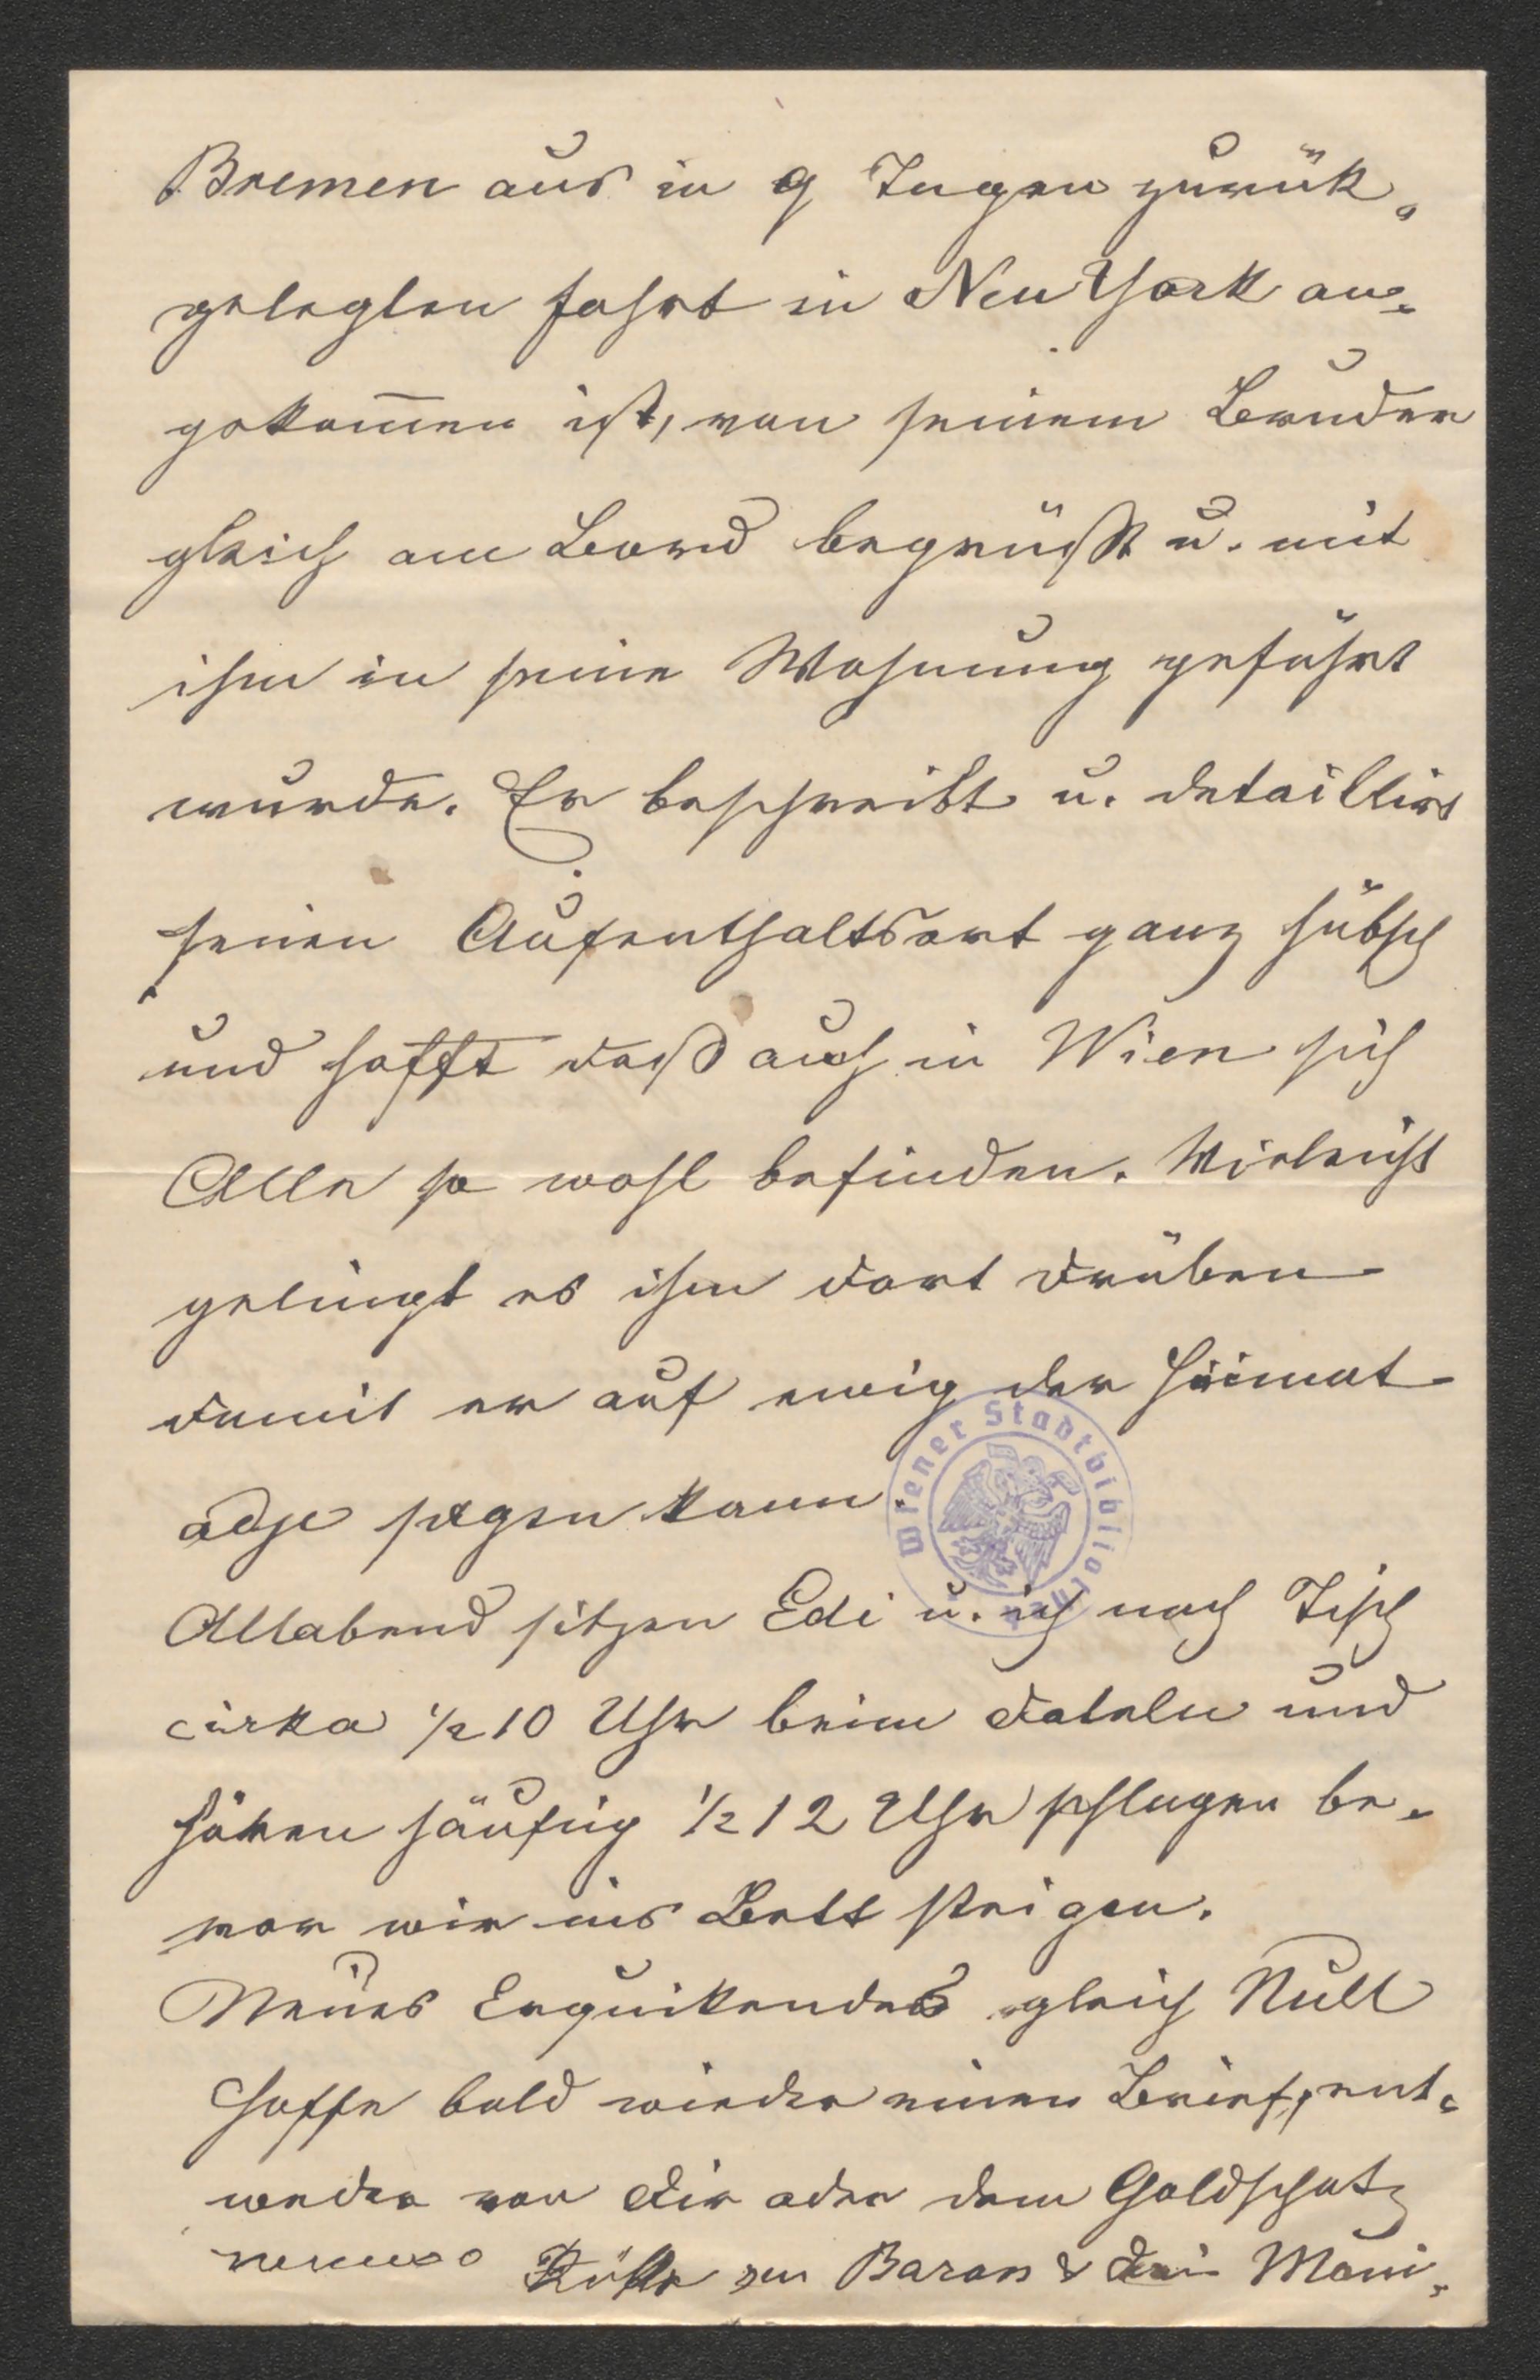 Bremen aus in 9 Tagen zurük-
gelegten Fahrt in New York an-
gekom̄en ist, von seinem Bruder
gleich am Bord begrüßt u. mit
ihm in seine Wohnung geführt
wurde. Er beschreibt u. detaillirt
seinen Aufenthaltsort ganz hübsch
und hofft daß auch in Wien sich
Alle so wohl befinden. Vieleicht
gelingt es ihm dort drüben
damit er auf ewig der Heimat
adje sagen kann.
Wiener Stadtbibliothek
Allabend sitzen Edi u. ich nach Tisch
cirka ½10 Uhr beim
und
hören häufig ½12 Uhr schlagen be-
vor wir ins Bett steigen.
Neues Erquikendes gleich Null
Hoffe bald wieder einen Brief, ent-
weder von Dir oder dem Goldschatz
Baron & Dein Mani.